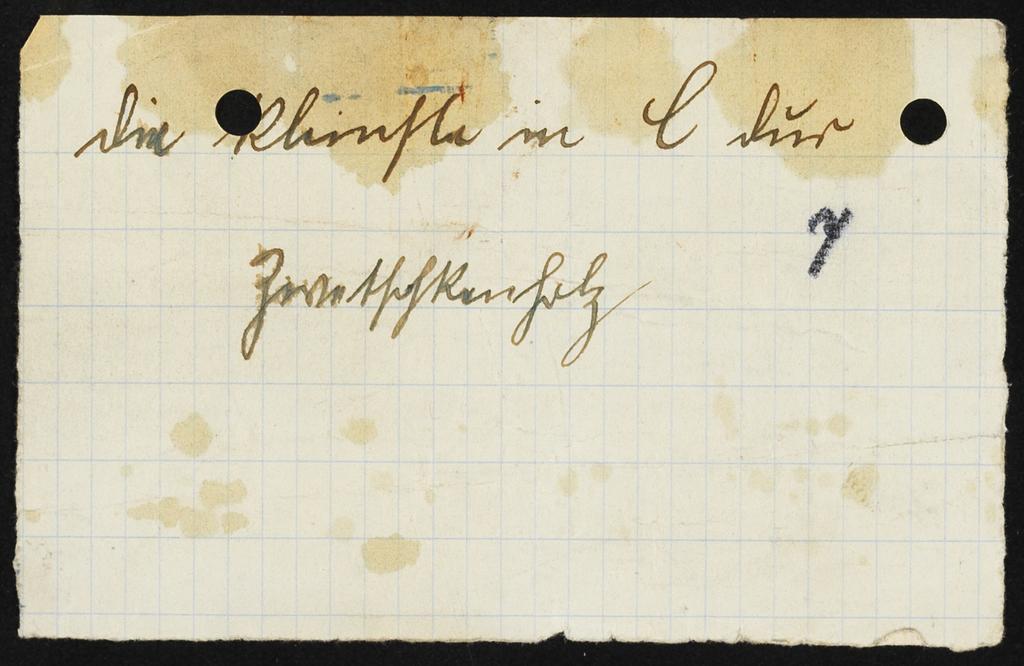 die kleinste in C dur
7
Zwetschkenholz